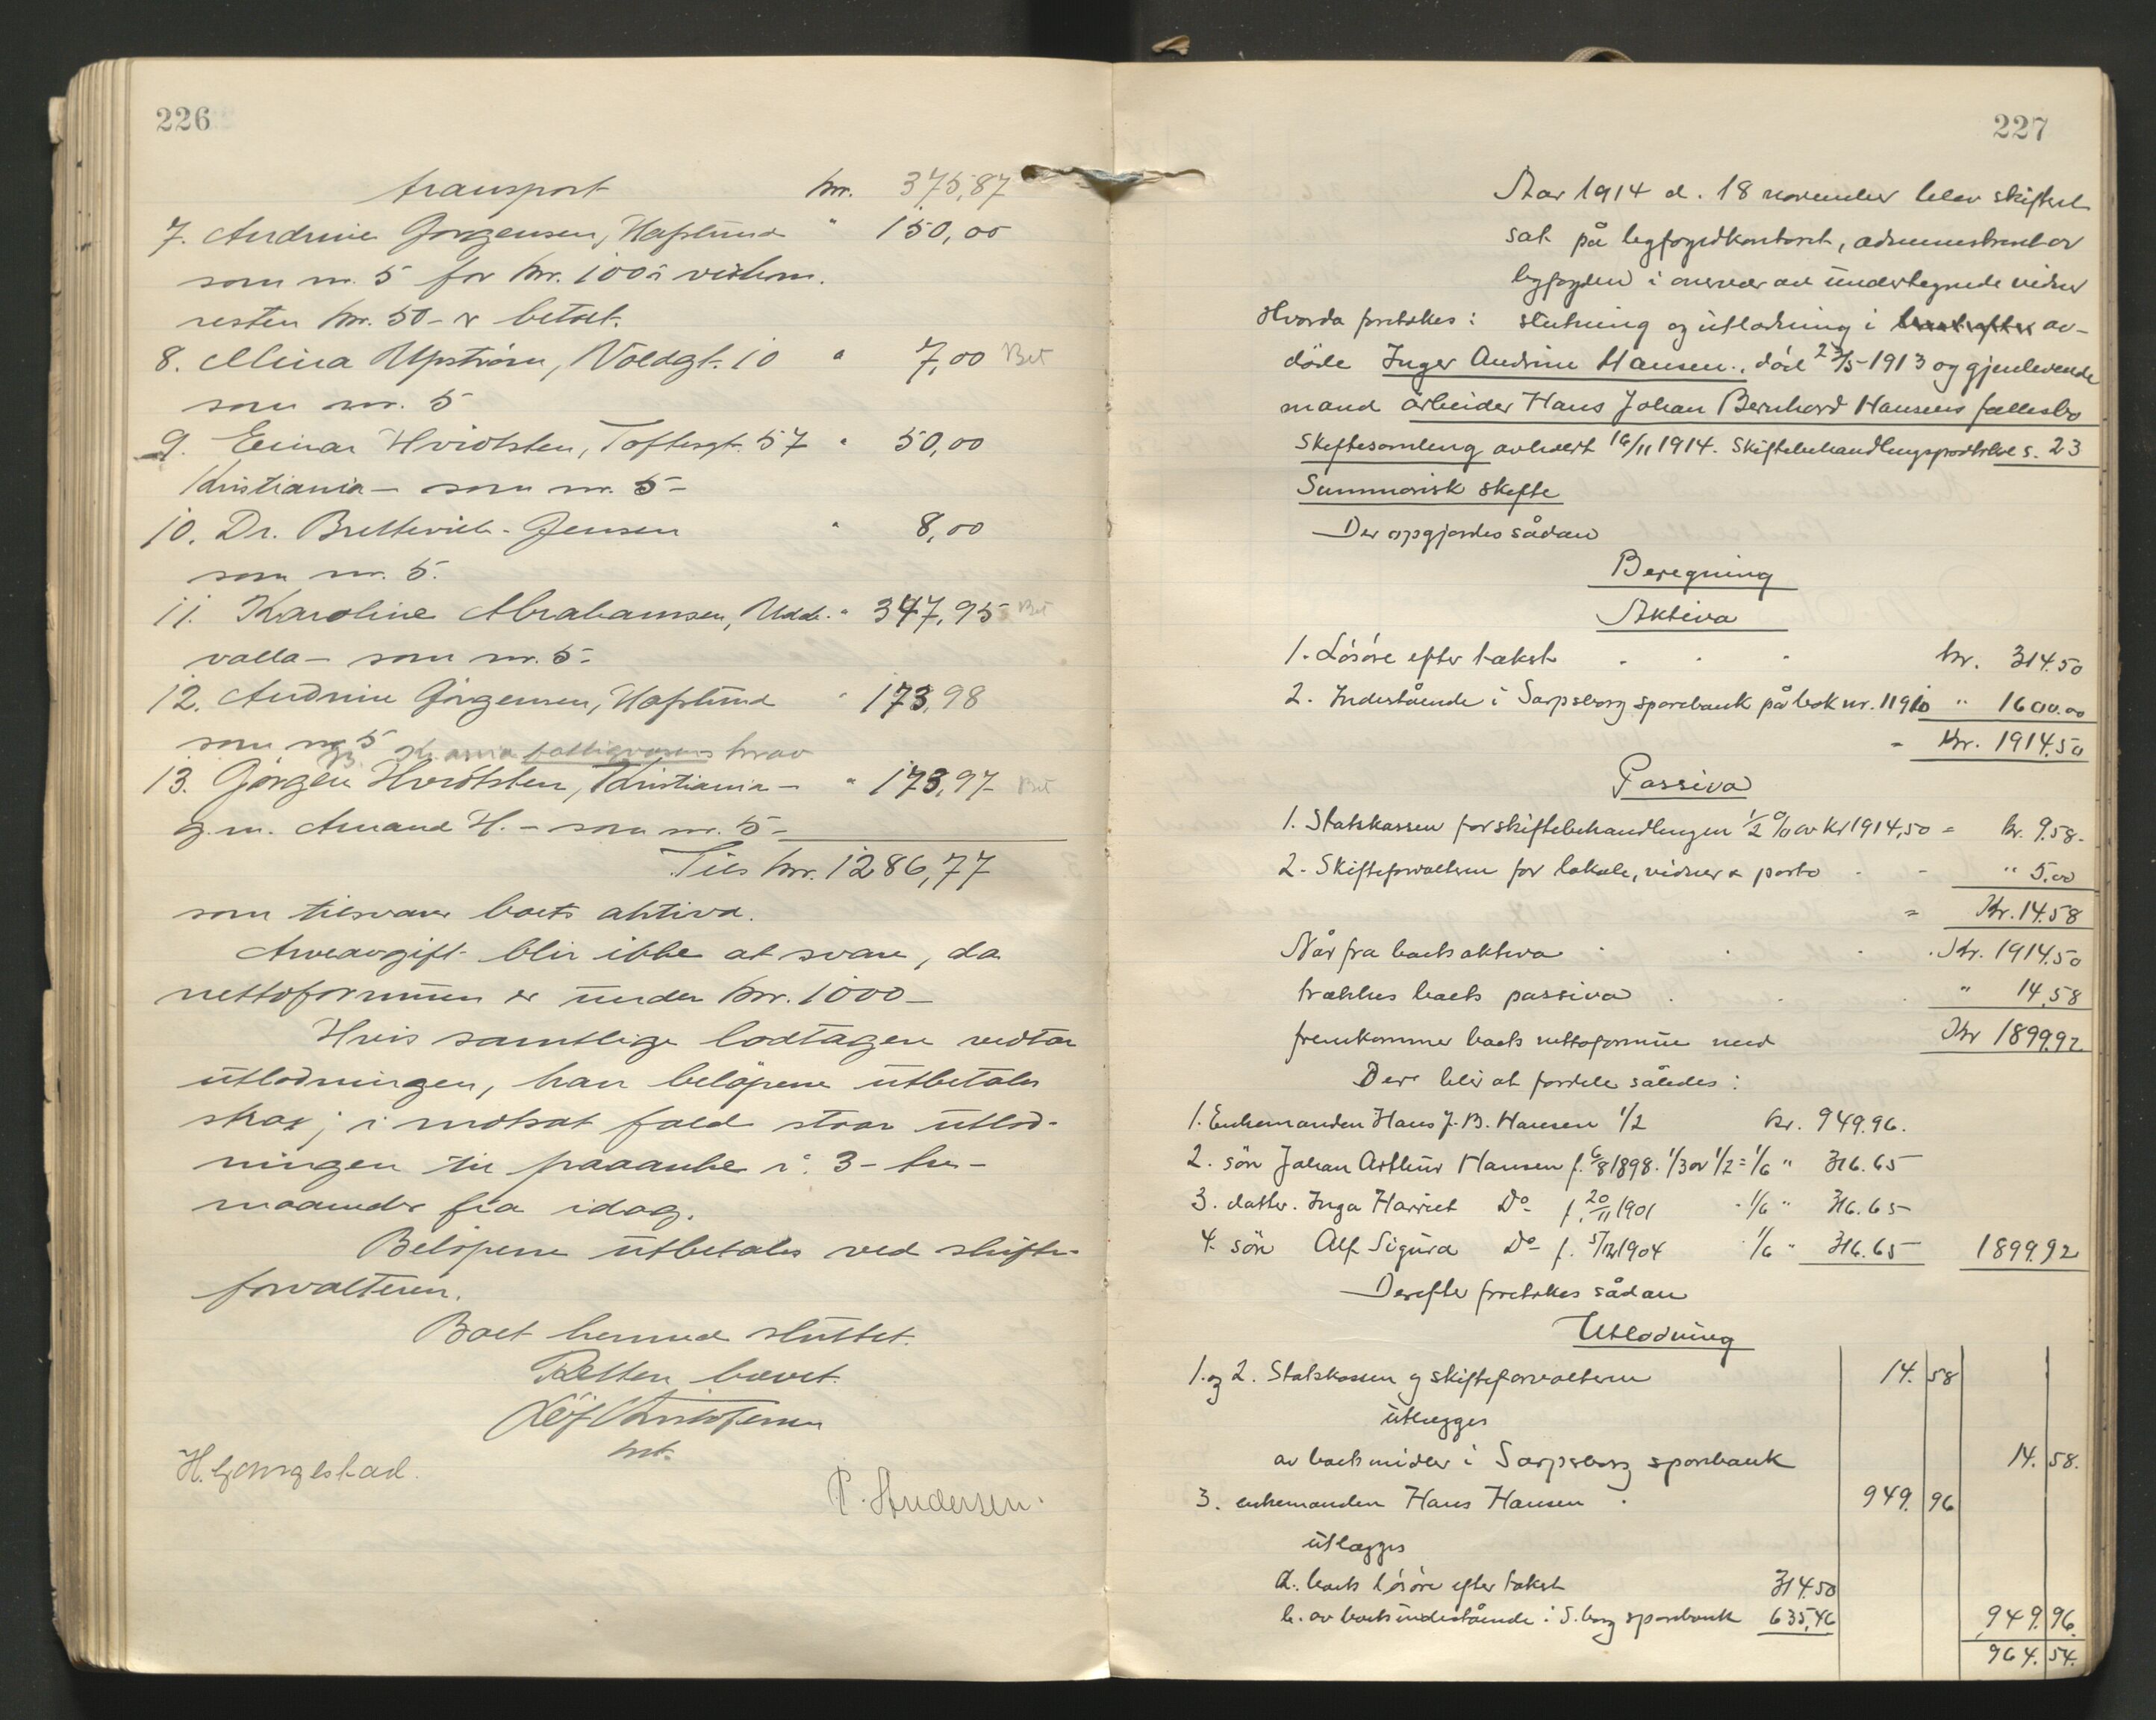 226
transport kr. 375,87
7. Andrine Jørgensen, Hafslund " 150,00
som nr. 5 for kr. 100 i
resten kr. 50 – er betalt.
8. Mina Upström, Voldgt. 10 " 7,00 Bet
som nr. 5
9. Einar Hvidtsten, Toftesgt. 57 " 50,00
Kristiania – som nr. 5 –
10. Dr. Brettevile-Jensen " 8,00
som nr. 5.
11. Karoline Abrahamsen, Udde- " 347,95 Bet
valla – som nr. 5 –
12. Andrine Jørgensen, Hafslund " 173,98
som nr 5
Kr.ania fattigvæsens krav
13. Jørgen Hvidtsten, Kristiania – " 173,97 Bet
g.m. Amand H. – som nr. 5 –
Tils kr. 1286,77
som tilsvarer boets aktiva.
Arveavgift blir ikke at svare, da
nettoformuen er under kr. 1000 –
Hvis samtlige lodtagere vedtar
utlodningen, kan beløpene utbetales
strax; i motsat fald staar utlod-
ningen til paaanke i 3 – tre –
maaneder fra idag.
Beløpene utbetales ved skifte-
forvalteren.
Boet hermed sluttet.
Retten hævet.
H. Gjongestad.
P. Andersen.
227
Aar 1914 d. 18 november blev skifteret
sat på byfogedkontoret, administreret av
byfogden i overvær av undertegnede vidner
Hvorda foretokes: slutning og utlodning i av-
døde Inger Andrine Hansen, død 23/5-1913 og gjenlevende
mand arbeider Hans Johan Bernhard Hansens fællesbo
Skiftesamling avholdt 16/11 1914. Skiftebehandlingsprotokol s. 23
Summarisk skifte
Der opgjordes sådan
Beregning
Aktiva
1. Løsøre efter takst . . . kr. 314.50
2. Indestående i Sarpsborg sparebank på bok nr. 11910 " 1600.00
= Kr. 1914.50
Passiva
1. Statskassen for skiftebehandlingen 1/2 % av Kr 1914,50 = kr. 9.58.
2. Skifteforvalteren for lokale, vidner & porto . - " 5.00
= Kr. 14.58
Når fra boets aktiva . . . Kr. 1914.50
trækkes boets passiva . . . " 14.58
fremkommer boets nettoformue med Kr 1899.92
Der blir at fordele således:
1. Enkemanden Hans J. B. Hansen 1/2 kr. 949.96.
2. søn Johan Arthur Hansen f. 6/8 1898. 1/3 av 1/2 = 1/6 " 316.65
3. datter. Inga Harriet Do f. 20/11 1901 - 1/6 " 316.65
4. søn Alf Sigurd Do f. 5/12 1904 1/6 " 316.65 1899.92
Derefter foretokes sådan
Utlodning
1. og 2. Statskassen og skifteforvalteren 14. 58
utlægges
av boets midler i Sarpsborg sparebank 14. 58.
3. enkemanden Hans Hansen . 949. 96
utlægges
a. boets løsøre efter takst 314.50
b. av boets indestående i S.borg sparebank 635,46 949. 96.
964. 54.